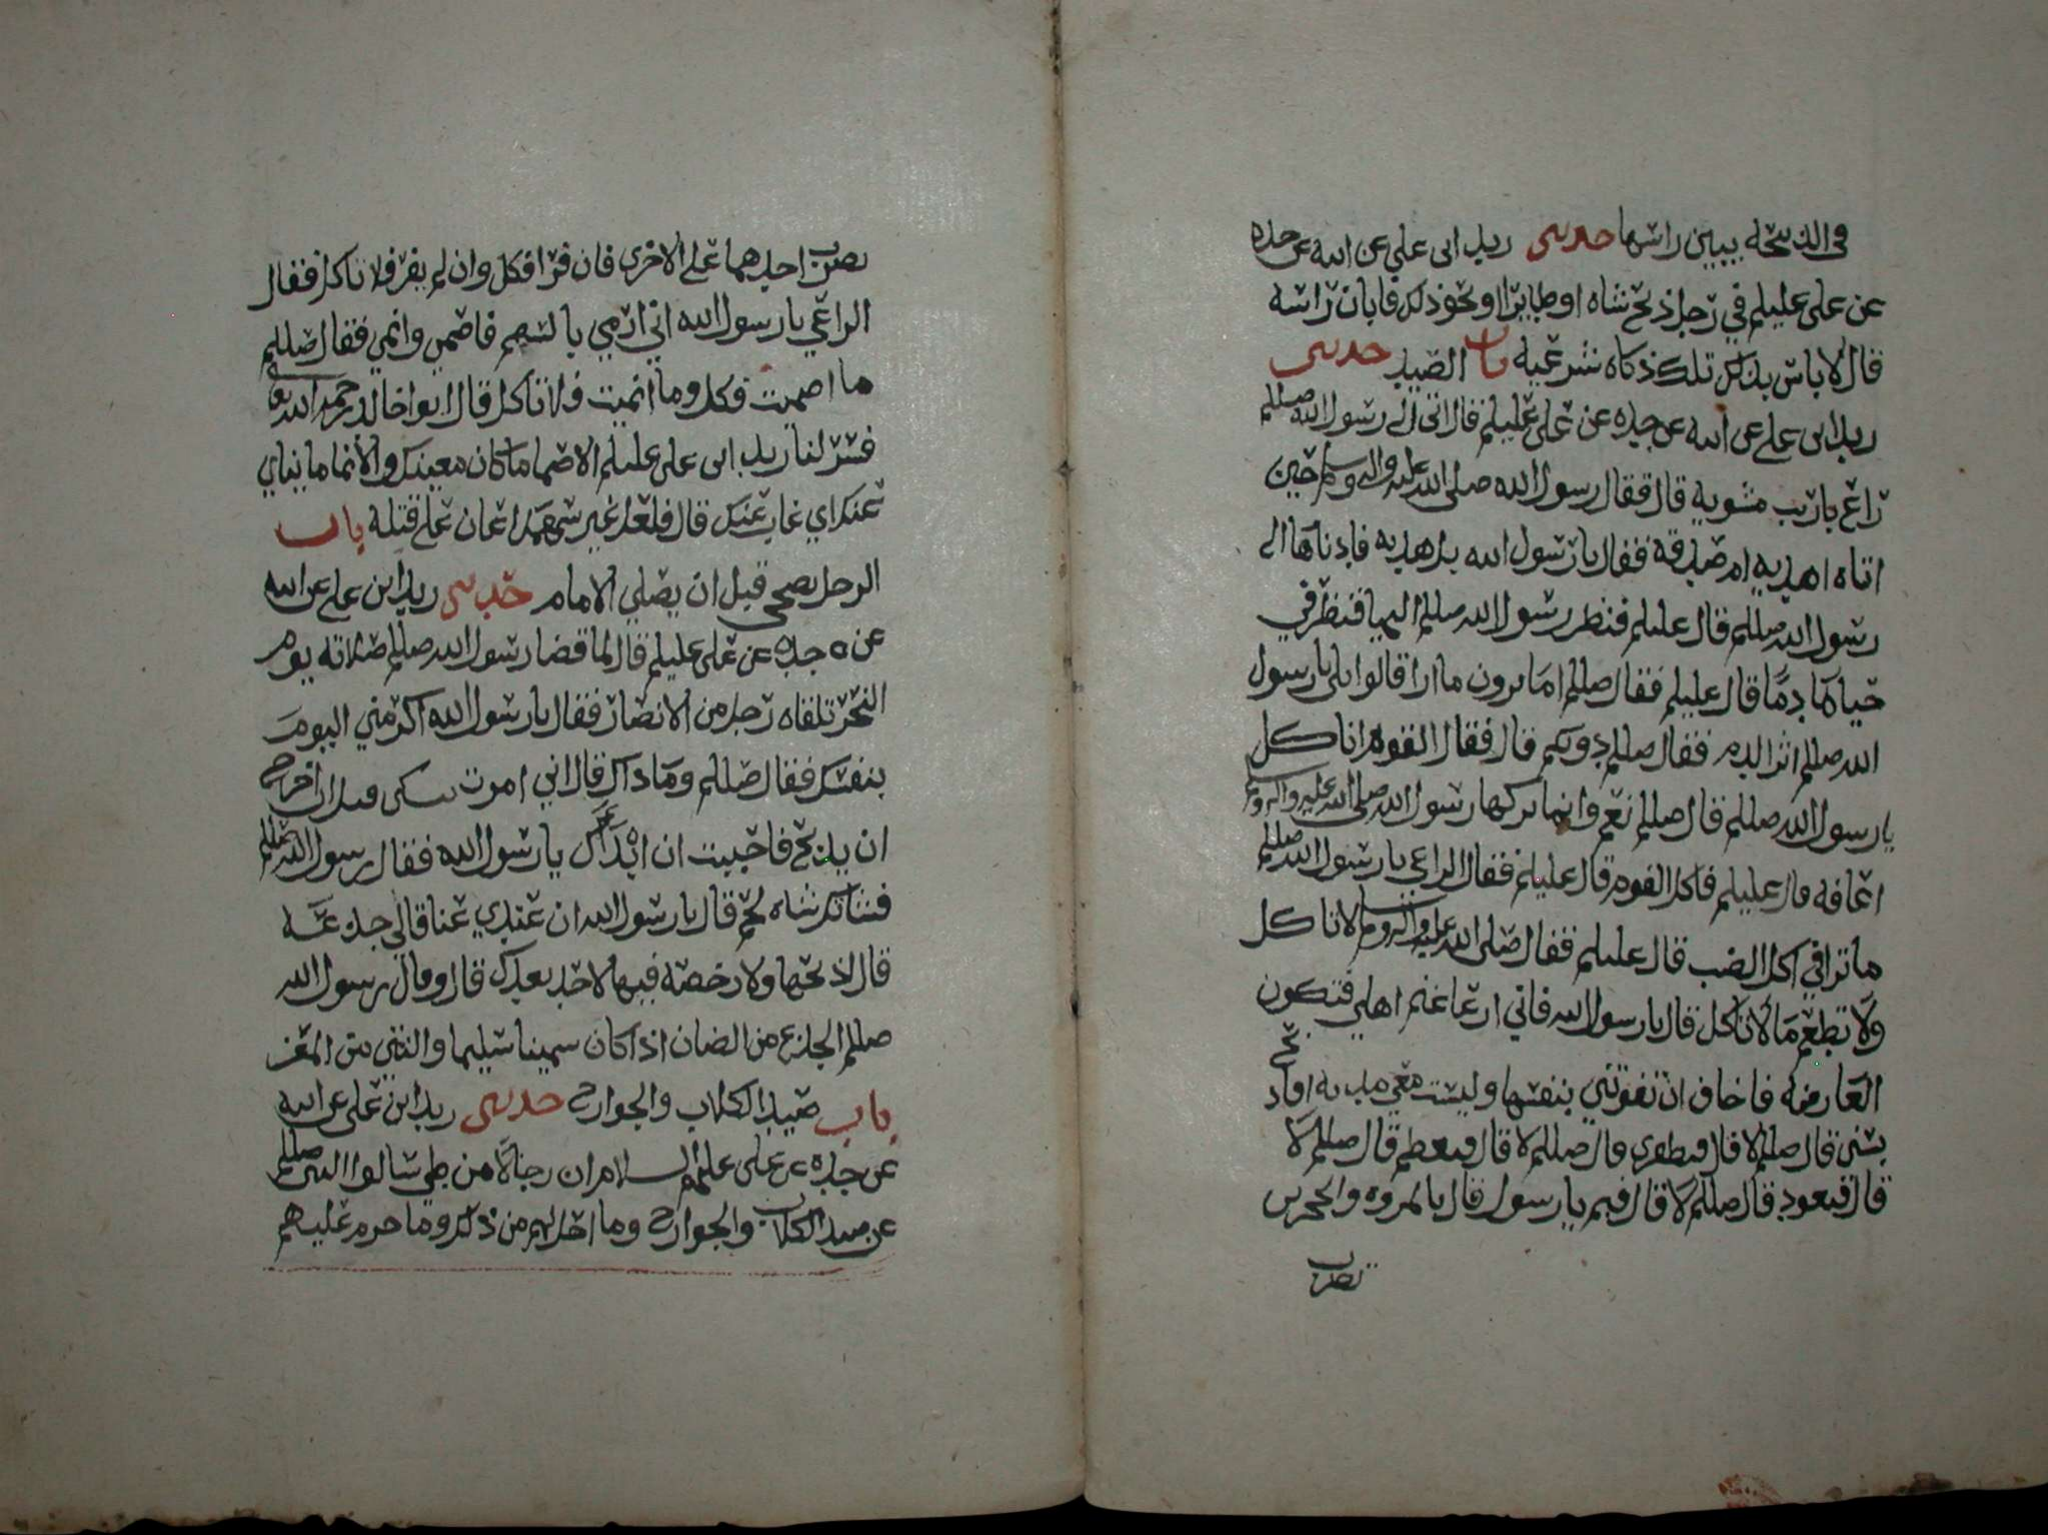 في الذبيحة يبين راسها حدثني زيد ابن علي عن ابيه عن جده
عن علي عليلم في رجل ذبح شاه او طايرا او نحو ذلك فابان راسه
قال لا باس بذلك تلك ذكاه شرعيه باب الصيد حدثني
زيد ابن علي عن ابيه عن جده عن علي عليلم قال اتى الى رسول الله صللم
راع بارنب مشويه قال فقال رسول الله صلى الله عليه واله وسلم حين
اتاه اهديه ام صدقه فقال يا رسول الله بل هديه فادناها الى
رسول الله صللم قال عليلم فنظر رسول الله صللم اليها فنظر في
حياها دما قال عليلم فقال صللم اما ترون ما ارا قالوا بلى يا رسول
الله صللم اثر الدم فقال صللم دونكم قال فقال القوم اناكل
يا رسول الله صللم قال صللم نعم وانما تركها رسول الله صلى الله عليه واله وسلم
اعافه قال عليلم فاكل القوم قال عليلم فقال الراعي يا رسول الله صللم
ما ترا في اكل الضب قال عليلم فقال صلى الله عليه واله وسلم لا ناكل
ولا تطعم ما لا ناكل قال يا رسول الله فاني ارعا غنم اهلي فتكون
العارضه فاخاف ان تفوتني بنفسها وليست معي مديه افاذبح
بسني قال صللم لا قال فبظفري قال صللم لا قال فبعظم قال صللم لا
قال فبعود قال صللم لا قال فبم يا رسول قال بالمروه والحجرين
تضرب
تضرب احدهما على الاخرى فان فرا فكل وان لم يفر فلا تاكل فقال
الراعي يا رسول الله اني ارمي بالسهم فاصمي وانمي فقال صللم
ما اصميت فكل وما انميت فلا تاكل قال ابوا خالد رحمه الله تعالى
فسر لنا زيد ابن علي عليلم الاصما ما كان بعينك والانما ما يناي
عنك اي غاب عنك قال فلعل غير سهمك اعان على قتله باب
الرجل يضحي قبل ان يصلي الامام حدثني زيد ابن علي عن ابيه
عن جده عن علي عليلم قال لما قضا رسول الله صللم صلاته يوم
النحر تلقاه رجل من الانصار فقال يا رسول الله اكرمني اليوم
بنفسك فقال صللم وما ذاك قال اني امرت بنسكي قبل ان اخرج
ان يذبح فاحببت ان ابدا بك يا رسول الله فقال رسول الله صللم
فشاتك شاه لحم قال يا رسول الله ان عندي عناقا لي جذعه
قال اذبحها ولا رخصه فيها لاحد بعدك قال وقال رسول الله
صللم الجذع من الضان اذا كان سمينا سليما والثني من المعز
باب صيد الكلاب والجوارح حدثني زيد ابن علي عن ابيه
عن جده عن علي عليهم السلام ان رجالا من طي سالوا النبي صللم
عن صيد الكلاب والجوارح وما احل لهم من ذلك وما حرم عليهم